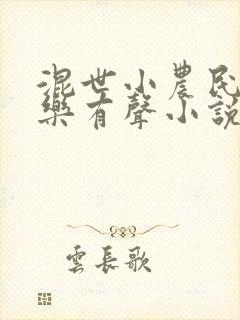 混世小農民
樂有聲小說
雲長歌